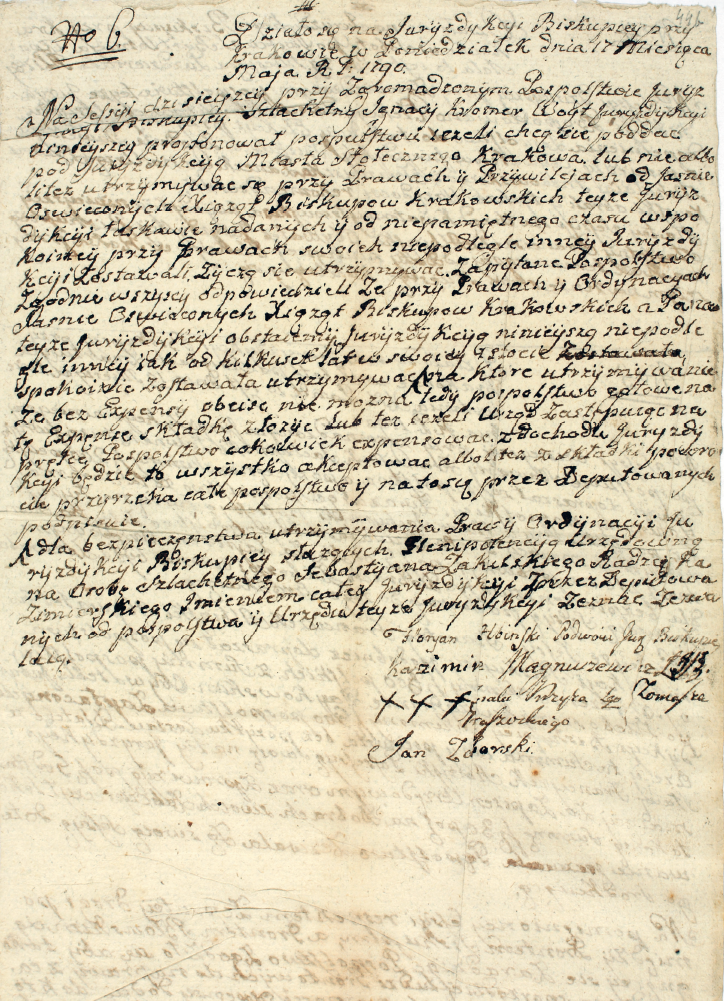 No 6.
446
Działo się na Juryzdykcyi Biskupiey przy
Krakowie w Poniedziałek dnia 17 Miesiąca
Maja R. P. 1790.
Na Sessyi dzisieyszey przy Zgromadzonym Pospolstwie Juryz
Biskupiey Szlachetny Ignacy Kromer Woyt Juryzdykcyi
ninieyszey proponował pospulstwu ieżeli chcą się poddac
pod Juryzdykcyą Miasta Stołecznego Krakowa lub nie albo
liteż utrzymywac się przy Prawach y Przywilejach od Jasnie
Oswieconych Xiążąt Biskupow Krakowskich teyże Juryz
dykcyi łaskawie nadanych y od niepamiętnego czasu wspo
koiney przy Prawach swoich niepodległe inney Juryzdy
kcyi Zostawali, Życzą się utrzymywac. Zapytane Pospolstwo
Zgodnie wszyscy odpowiedzieli Ze przy Prawach y Ordynacyach
Jasnie Oswieconych Xiążąt Biskupow Krakowskich a Pana
teyże Juryzdykcyi obstaiemy Juryzdykcyą ninieyszą niepodle
głe inney iak od kilkuset lat w swoiey Istocie Zostawała
spokoinie Zostawała utrzymywac na ktore utrzymywanie
Ze bez Expensy obeisc nie można tedy pospolstwo gotowe na
tę Expensę składkę złożyc lub też ieżeli Urząd Zastępuiąc na
prętce Pospolstwo cokolwiek expensowac z dochodu Juryzdy
kcyi będzie to wszystko akceptowac albo też z składki podoro
cic przyrzeka całe pospolstwo y na to się przez Deputowanych
podpisuie.
A dla bezpieczenstwa utrzymywania Praw y Ordynacyi Ju
ryzdykcyi Biskupiey służących, Plenipotencyą Urzędowną
na Osobę Szlachetnego Sebastyana Zakulskiego Radzcę Ka
zimierskiego Imieniem całey Juryzdykcyi Przez Deputowa
nych od pospolstwa y Urzędu teyże Juryzdykcyi Zeznac Zezwa
laią.
Floryan Podwoyi Jury Biskupie
Kazimirz Magnuszewicz
X X X Znaki Krzyża Tomasza
Jan Zdorski